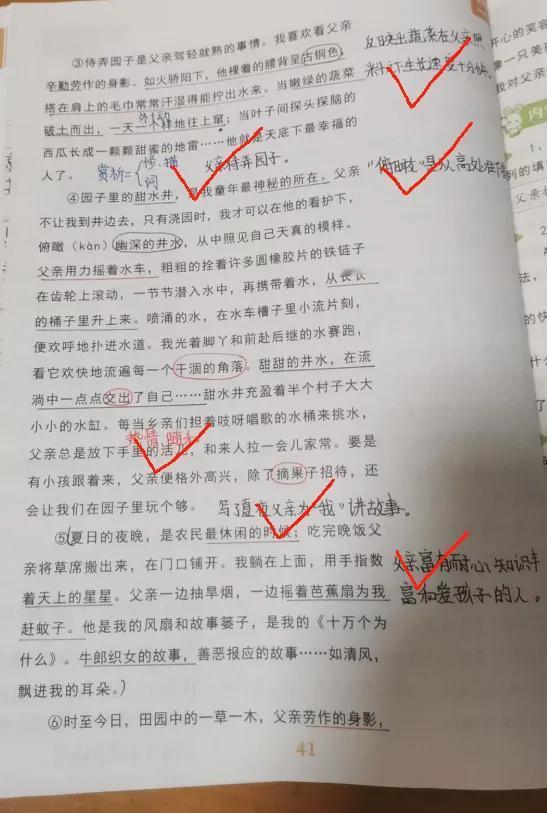 ③侍弄园子是父亲驾轻就熟的事情。我喜欢看父亲
辛勤劳作的身影。如火骄阳下，他裸着的腰背呈古铜色，
搭在肩上的毛巾常常汗湿得能拧出水来。当嫩绿的蔬菜
破土而出，一天一个样地往上窜；当叶子间探头探脑的
西瓜长成一颗颗甜蜜的地雷……他就是天底下最幸福的
人了。
赏析
词
父亲侍弄园子。
反映出蔬菜在父亲照
料下生长速度十分快，
④园子里的甜水井，是我童年最神秘的所在。父亲
不让我到井边去，只有浇园时，我才可以在他的看护下，
俯瞰（kàn）幽深的井水，从中照见自己天真的模样。
父亲用力摇着水车，粗粗的拴着许多圆橡胶片的铁链子
在齿轮上滚动，一节节潜入水中，再携带着水，从长长
的桶子里升上来。喷涌的水，在水车槽子里小流片刻，
便欢呼地扑进水道。我光着脚丫和前赴后继的水赛跑，
看它欢快地流遍每一个干涸的角落。甜甜的井水，在流
淌中一点点交出了自己……甜水井充盈着半个村子大大
小小的水缸。每当乡亲们担着吱呀唱歌的水桶来挑水，
热情
父亲总是放下手里的活儿，和来人拉一会儿家常。要是
有小孩跟着来，父亲便格外高兴，除了摘果子招待，还
会让我们在园子里玩个够。
写了夏夜父亲为“我”讲故事。
⑤夏日的夜晚，是农民最休闲的时候；吃完晚饭父
亲将草席搬出来，在门口铺开。我躺在上面，用手指数
着天上的星星。父亲一边抽旱烟，一边摇着芭蕉扇为我
赶蚊子。他是我的风扇和故事篓子，是我的《十万个为
什么》。牛郎织女的故事，善恶报应的故事……如清风，
飘进我的耳朵。
父亲富有耐心、知识丰
富和爱孩子的人。
⑥时至今日，田园中的一草一木，父亲劳作的身影，
41